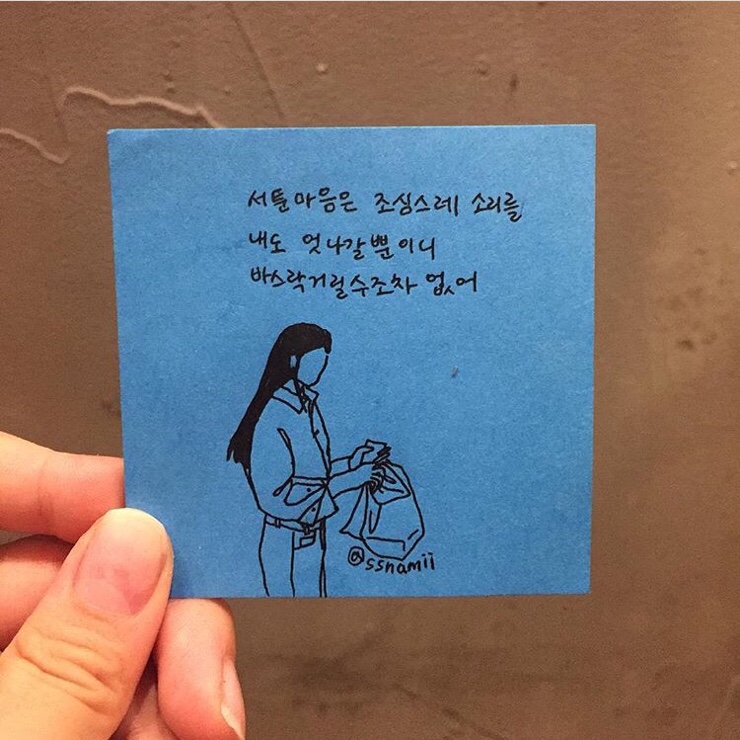 서툰마음은 조심스레 소리를
내도 엇나갈뿐이니
바스락거릴수조차 없어
@ssnamii